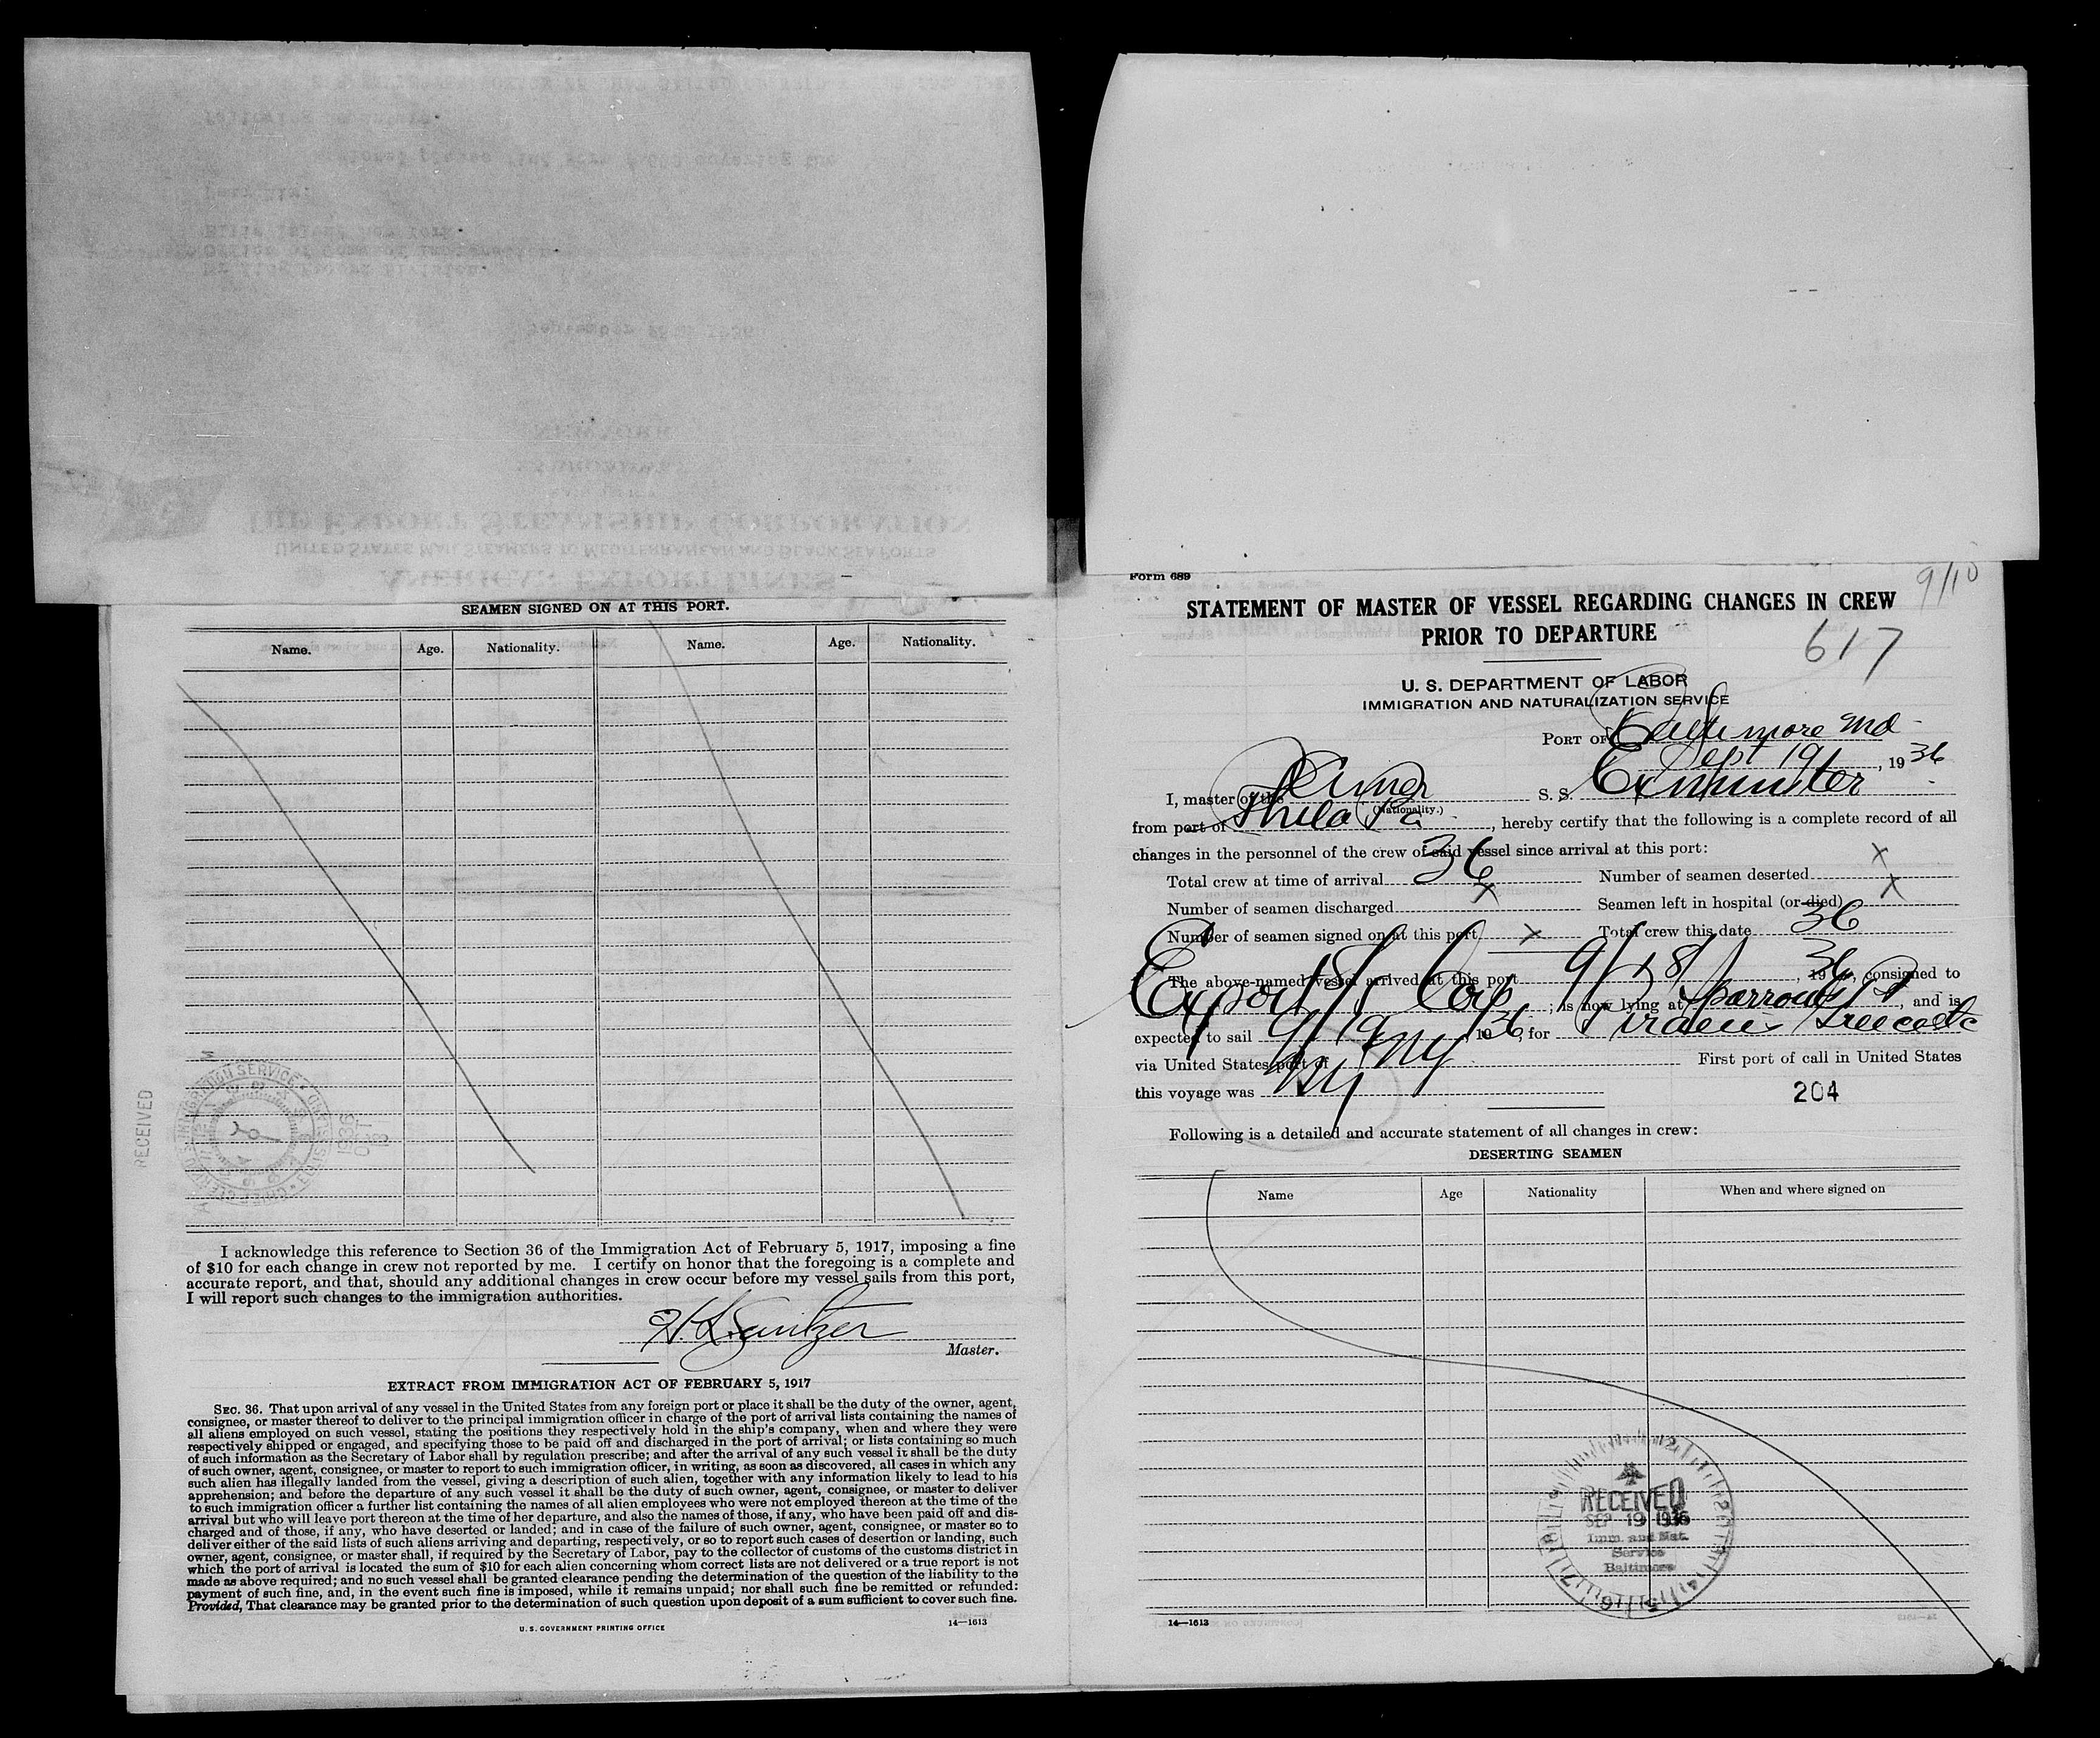 SEAMEN SIGNED ON AT THIS PORT.
Name. Age. Nationality. Name. Age. Nationality.
RECEIVED
I acknowledge this reference to Section 36 of the Immigration Act of February 5, 1917, imposing a fine
of $10 for each change in crew not reported by me. I certify on honor that the foregoing is a complete and
accurate report, and that, should any additional changes in crew occur before my vessel sails from this port,
I will report such changes to the immigration authorities.
Master.
EXTRACT FROM IMMIGRATION ACT OF FEBRUARY 5, 1917
SEC. 36. That upon arrival of any vessel in the United States from any foreign port or place it shall be the duty of the owner, agent,
consignee, or master thereof to deliver to the principal immigration officer in charge of the port of arrival lists containing the names of
all aliens employed on such vessel, stating the positions they respectively hold in the ship's company, when and where they were
respectively shipped or engaged, and specifying those to be paid off and discharged in the port of arrival; or lists containing so much
of such information as the Secretary of Labor shall by regulation prescribe; and after the arrival of any such vessel it shall be the duty
of such owner, agent, consignee, or master to report to such immigration officer, in writing, as soon as discovered, all cases in which any
such alien has illegally landed from the vessel, giving a description of such alien, together with any information likely to lead to his
apprehension; and before the departure of any such vessel it shall be the duty of such owner, agent, consignee, or master to deliver
to such immigration officer a further list containing the names of all alien employees who were not employed thereon at the time of the
arrival but who will leave port thereon at the time of her departure, and also the names of those, if any, who have been paid off and dis-
charged and of those, if any, who have deserted or landed; and in case of the failure of such owner, agent, consignee, or master so to
deliver either of the said lists of such aliens arriving and departing, respectively, or so to report such cases of desertion or landing, such
owner, agent, consignee, or master shall, if required by the Secretary of Labor, pay to the collector of customs of the customs district in
which the port of arrival is located the sum of $10 for each alien concerning whom correct lists are not delivered or a true report is not
made as above required; and no such vessel shall be granted clearance pending the determination of the question of the liability to the
payment of such fine, and, in the event such fine is imposed, while it remains unpaid; nor shall such fine be remitted or refunded:
Provided, That clearance may be granted prior to the determination of such question upon deposit of a sum sufficient to cover such fine.
U. S. GOVERNMENT PRINTING OFFICE 14—1613
Form 689
9/10
STATEMENT OF MASTER OF VESSEL REGARDING CHANGES IN CREW
PRIOR TO DEPARTURE
617
U. S. DEPARTMENT OF LABOR
IMMIGRATION AND NATURALIZATION SERVICE
PORT OF Baltimore Md
Sept 19, 1936
I, master of the Amer S. S. Exminster
(Nationality.)
from port of Phila Pa, hereby certify that the following is a complete record of all
changes in the personnel of the crew of said vessel since arrival at this port:
Total crew at time of arrival 36 Number of seamen deserted X
Number of seamen discharged X Seamen left in hospital (or died) X
Number of seamen signed on at this port X Total crew this date 36
The above-named vessel arrived at this port 9/18/, 1936, consigned to
Export SS Corp; is now lying at Sparrows Pt, and is
expected to sail 9/19, 1936, for Piraeus Greece etc
via United States port of NY First port of call in United States
this voyage was NY
204
Following is a detailed and accurate statement of all changes in crew:
DESERTING SEAMEN
Name Age Nationality When and where signed on
RECEIVED
SEP 19 1936
Imm. and Nat.
Service
Baltimore
14—1613